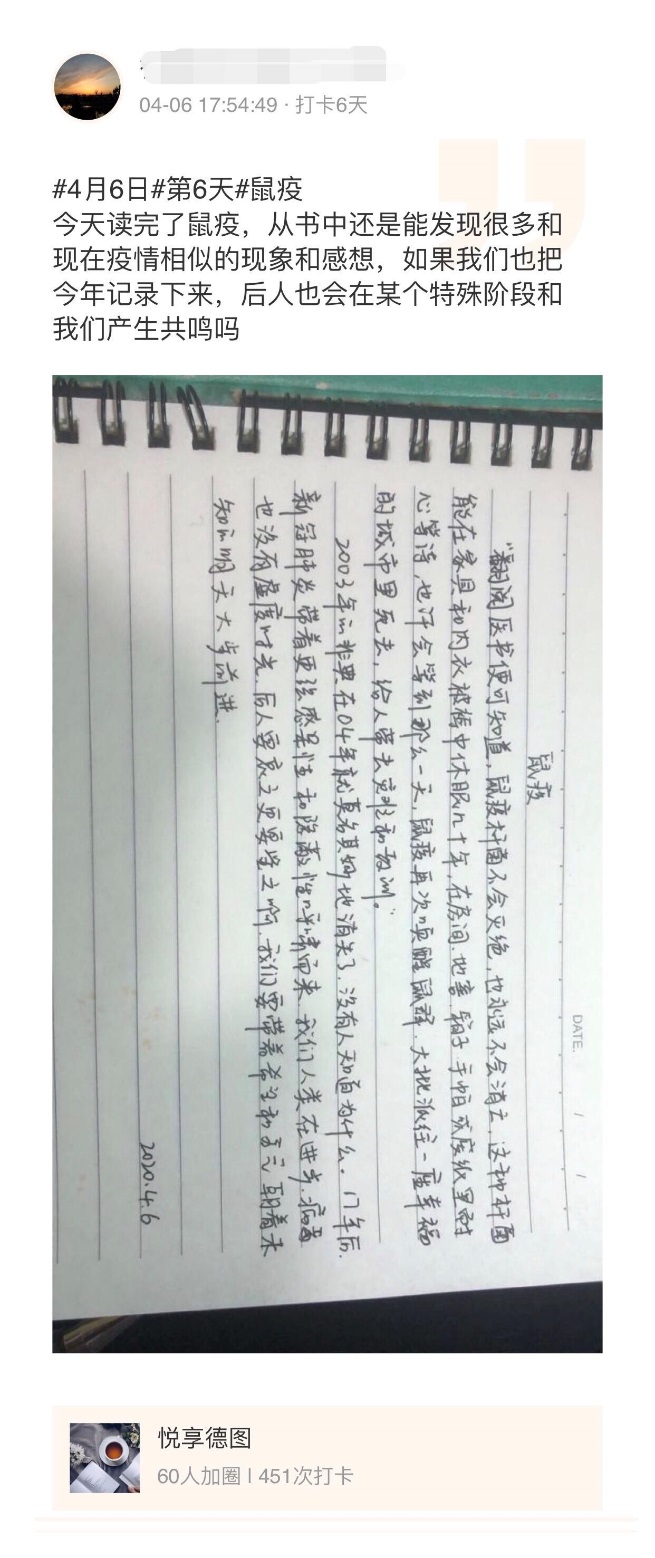 04-06 17:54:49 · 打卡6天
#4月6日#第6天#鼠疫
今天读完了鼠疫，从书中还是能发现很多和
现在疫情相似的现象和感想，如果我们也把
今年记录下来，后人也会在某个特殊阶段和
我们产生共鸣吗
DATE. / /
鼠疫
“翻阅医书便可知道，鼠疫杆菌不会灭绝，也永远不会消亡，这种杆菌
能在家具和内衣被褥中休眠几十年，在房间、地窖、箱子、手帕或废纸里耐
心等待，也许会等到那么一天，鼠疫再次唤醒鼠群，大批派往一座幸福
的城市里死去，给人带去灾难和教训。”
2003年的非典在04年就莫名其妙地消失了，没有人知道为什么。17年后，
新冠肺炎带着更强感染性和隐蔽性呼啸而来，我们人类在进步，病毒
也没有虚度时光，后人要哀之更要鉴之啊，我们要带着希望和，朝着未
知的明天大步前进.
2020.4.6
悦享德图
60人加圈 | 451次打卡